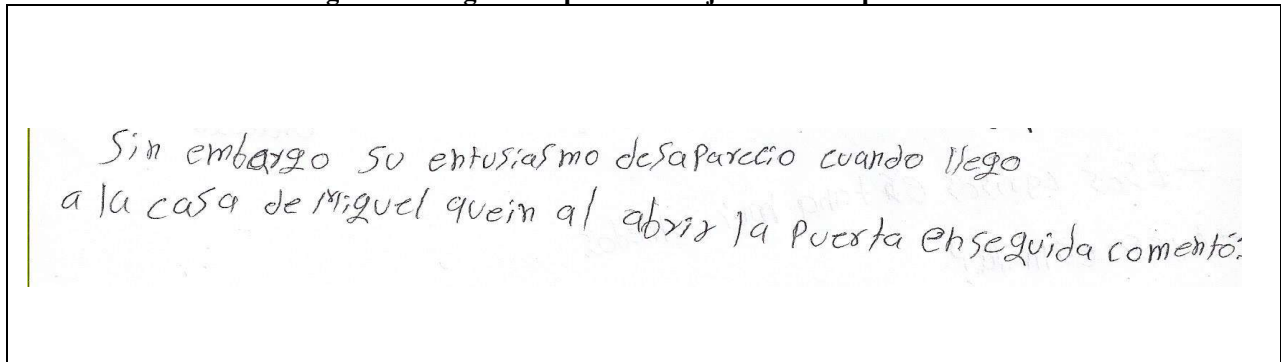 Sin embargo su entusiasmo desaparecio cuando llego
a la casa de Miguel quein al abrir la puerta enseguida comentó: